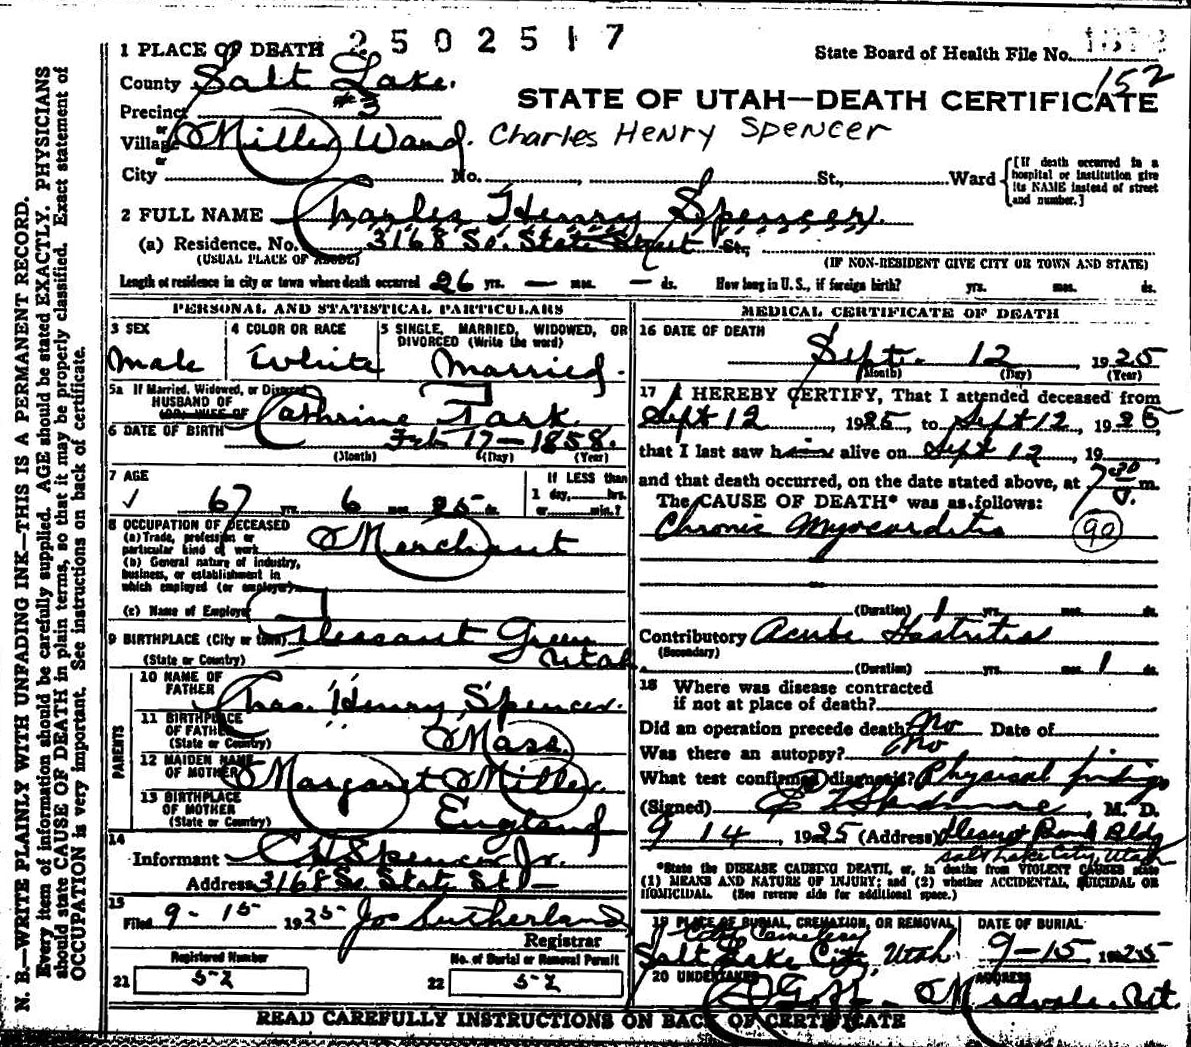 2502517
1 PLACE OF DEATH
State Board of Health File No.
152
County Salt Lake.
STATE OF UTAH—DEATH CERTIFICATE
Precinct #3
or
Village Miller Ward. Charles Henry Spencer
or
City No. , St., Ward {[If death occurred in a hospital or institution give its NAME instead of street and number.]
2 FULL NAME Charles Henry Spencer.
(a) Residence. No. 3168 So. State Street St.,
(USUAL PLACE OF ABODE) (IF NON-RESIDENT GIVE CITY OR TOWN AND STATE)
Length of residence in city or town where death occurred 26 yrs. — mos. — ds. How long in U.S., if foreign birth? yrs. mos. ds.
PERSONAL AND STATISTICAL PARTICULARS
3 SEX
Male
4 COLOR OR RACE
White
5 SINGLE, MARRIED, WIDOWED, OR DIVORCED (Write the word)
Married.
5a If Married, Widowed, or Divorced
HUSBAND OF
(or) WIFE OF Cathrine
6 DATE OF BIRTH Feb 17—1858.
(Month) (Day) (Year)
7 AGE
67 yrs. 6 mos. 25 ds.
If LESS than
1 day, hrs.
or min.?
8 OCCUPATION OF DECEASED
(a) Trade, profession or
particular kind of work Merchant
(b) General nature of industry,
business, or establishment in
which employed (or employer)
(c) Name of Employer
9 BIRTHPLACE (City or town) Pleasant Green
(State or Country) Utah
PARENTS
10 NAME OF
FATHER Chas. Henry Spencer.
11 BIRTHPLACE
OF FATHER
(State or Country) Mass.
12 MAIDEN NAME
OF MOTHER Margaret Miller.
13 BIRTHPLACE
OF MOTHER
(State or Country) England
14
Informant C H Spencer Jr.
Address 3168 So. State St.—
15
Filed 9-15 1925- Jos Sutherland
Registrar
Registered Number
21 52
No. of Burial or Removal Permit
22 52
MEDICAL CERTIFICATE OF DEATH
16 DATE OF DEATH
Sept. 12 1925
(Month) (Day) (Year)
17 I HEREBY CERTIFY, That I attended deceased from
Sept 12, 1925, to Sept 12, 1925,
that I last saw him alive on Sept 12, 19
and that death occurred, on the date stated above, at 7 30 m.
The CAUSE OF DEATH* was as follows:
Chronic Myocarditis 90
(Duration) 1 yrs. mos. ds.
Contributory Acute Gastritis
(Secondary)
(Duration) yrs. mos. 1 ds.
18 Where was disease contracted
if not at place of death?
Did an operation precede death? No Date of
Was there an autopsy? No
What test confirmed diagnosis? Physical findings
(Signed) , M. D.
9 14, 1925 (Address) Deseret Bank Bldg
Salt Lake City, Utah
*State the DISEASE CAUSING DEATH, or, in deaths from VIOLENT CAUSES state
(1) MEANS AND NATURE OF INJURY; and (2) whether ACCIDENTAL, SUICIDAL OR
HOMICIDAL. (See reverse side for additional space.)
19 PLACE OF BURIAL, CREMATION, OR REMOVAL
City Cemetery
Salt Lake City, Utah
DATE OF BURIAL
9-15 1925
20 UNDERTAKER
Goff
ADDRESS
Midvale. Ut
READ CAREFULLY INSTRUCTIONS ON BACK OF CERTIFICATE
N. B.—WRITE PLAINLY WITH UNFADING INK—THIS IS A PERMANENT RECORD.
Every item of information should be carefully supplied. AGE should be stated EXACTLY. PHYSICIANS
should state CAUSE OF DEATH in plain terms, so that it may be properly classified. Exact statement of
OCCUPATION is very important. See instructions on back of certificate.